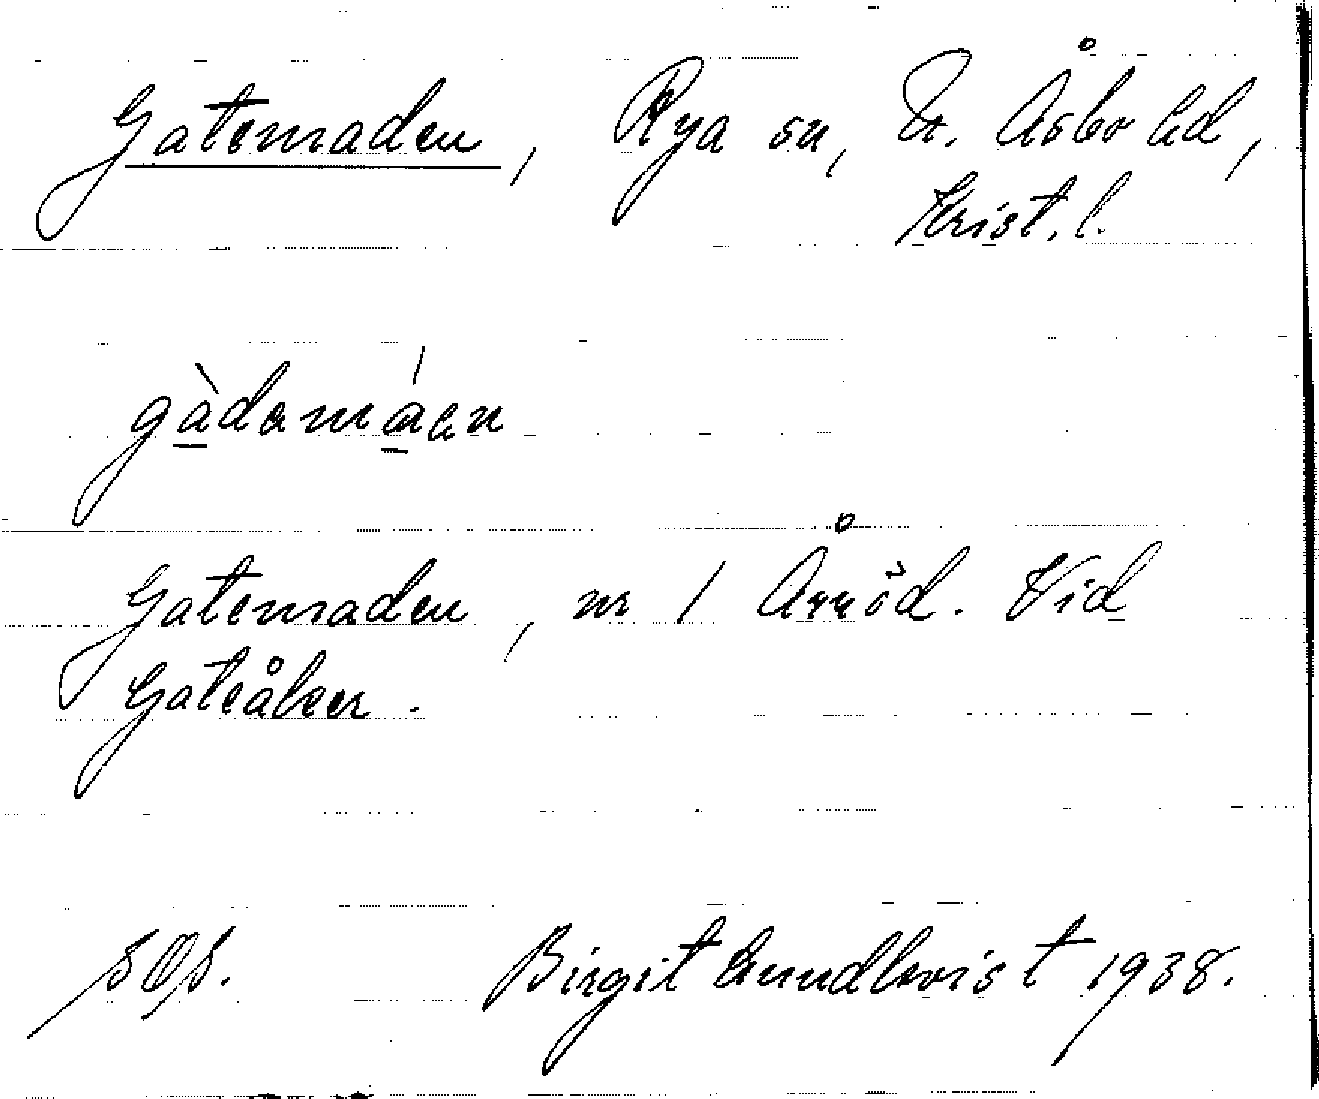 Gatemaden, Rya sn, N. Åsbo hd,
Krist. l.
gàdamáen
Gatemaden, nr 1 Arröd. Vid
Gateåker.
Birgit Lundkvist 1938.